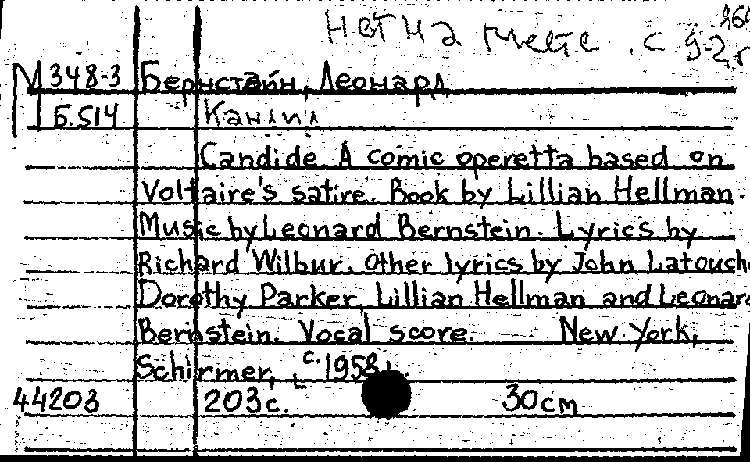 Нет на месте. с 9-2,
М 348-3 Бернстайн, Леонард
Б.514 Кандид
Candide. A comic operetta based on
Voltaire's satire. Book by Lillian Hellman.
Music by Leonard Bernstein. Lyrics by
Richard Wilbur. Other lyrics by John Latouch
Dorothy Parker, Lillian Hellman and Leonar
Bernstein. Vocal score. New York,
Schirmer, [c. 1958].
44203 203 с. 30cm